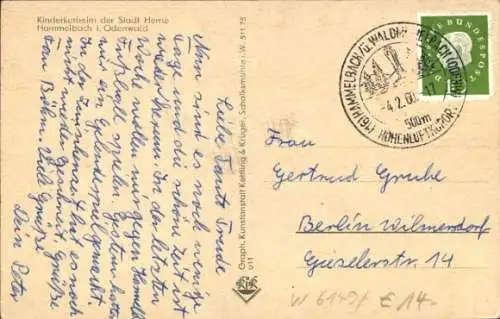 Kinderkurheim der Stadt Herne
Hammelbach i. Odenwald
Liebe Tante Trude
Nun sind es noch wenige
Tage und die schöne Zeit ist
wieder herum. In der letzten
Woche wollen wir gegen Hammelb
Fußball spielen. Gestern hatten
wir ein Geländespiel gemacht.
In der Zwischenzeit hat es noch
nicht wieder geschneit. Grüße
von Böhm. Viele Grüße
Dein Peter
Graph. Kunstanstalt Kettling & Krüger, Schalksmühle i. W. 511 75
611
(16) HAMMELBACH (ü. WALDMICHELBACH (ODENW)
-4.2.60
-17
500m
HÖHENLUFTKURORT
DEUTSCHE BUNDESPOST
Frau
Gertrud Grube
Berlin Wilmersdorf
Gieselerstr. 14
W 6149/ E 14.-